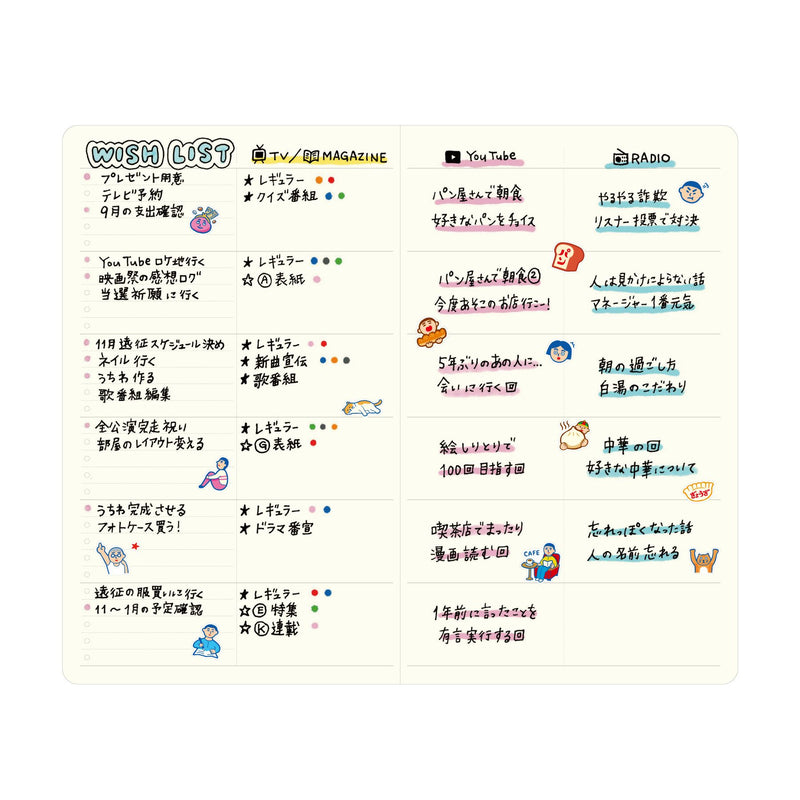 WISH LIST
TV/MAGAZINE
プレゼント用意
テレビ予約
9月の支出確認
★レギュラー
★クイズ番組
YouTubeロケ地行く
映画祭の感想ログ
当選祈願に行く
★レギュラー
☆Ⓐ表紙
11月遠征スケジュール決め
ネイル行く
うちわ作る
歌番組編集
★レギュラー
★新曲宣伝
★歌番組
全公演完走祝い
部屋のレイアウト変える
★レギュラー
☆Ⓖ表紙
うちわ完成させる
フォトケース買う!
★レギュラー
★ドラマ番宣
遠征の服買いに行く
11〜1月の予定確認
★レギュラー
☆Ⓔ特集
☆Ⓚ連載
YouTube
RADIO
パン屋さんで朝食
好きなパンをチョイス
やるやる詐欺
リスナー投票で対決
パン
パン屋さんで朝食②
今度あそこのお店行こー!
人は見かけによらない話
マネージャー1番元気
5年ぶりのあの人に…
会いに行く回
朝の過ごし方
白湯のこだわり
絵しりとりで
100回目指す回
中華の回
好きな中華について
ぎょうざ
喫茶店でまったり
漫画読む回
CAFE
忘れっぽくなった話
人の名前忘れる
1年前に言ったことを
有言実行する回